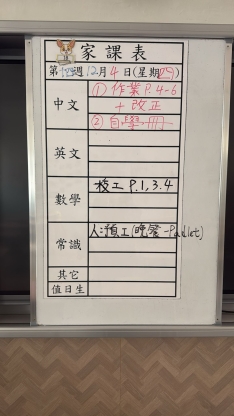 家課表
第14週12月4日(星期四)
中文
① 作業P.4-6
+改正
② 自學冊
英文
數學
校工 P.1,3.4
常識
人:預工(晚餐-Padlet)
其它
值日生